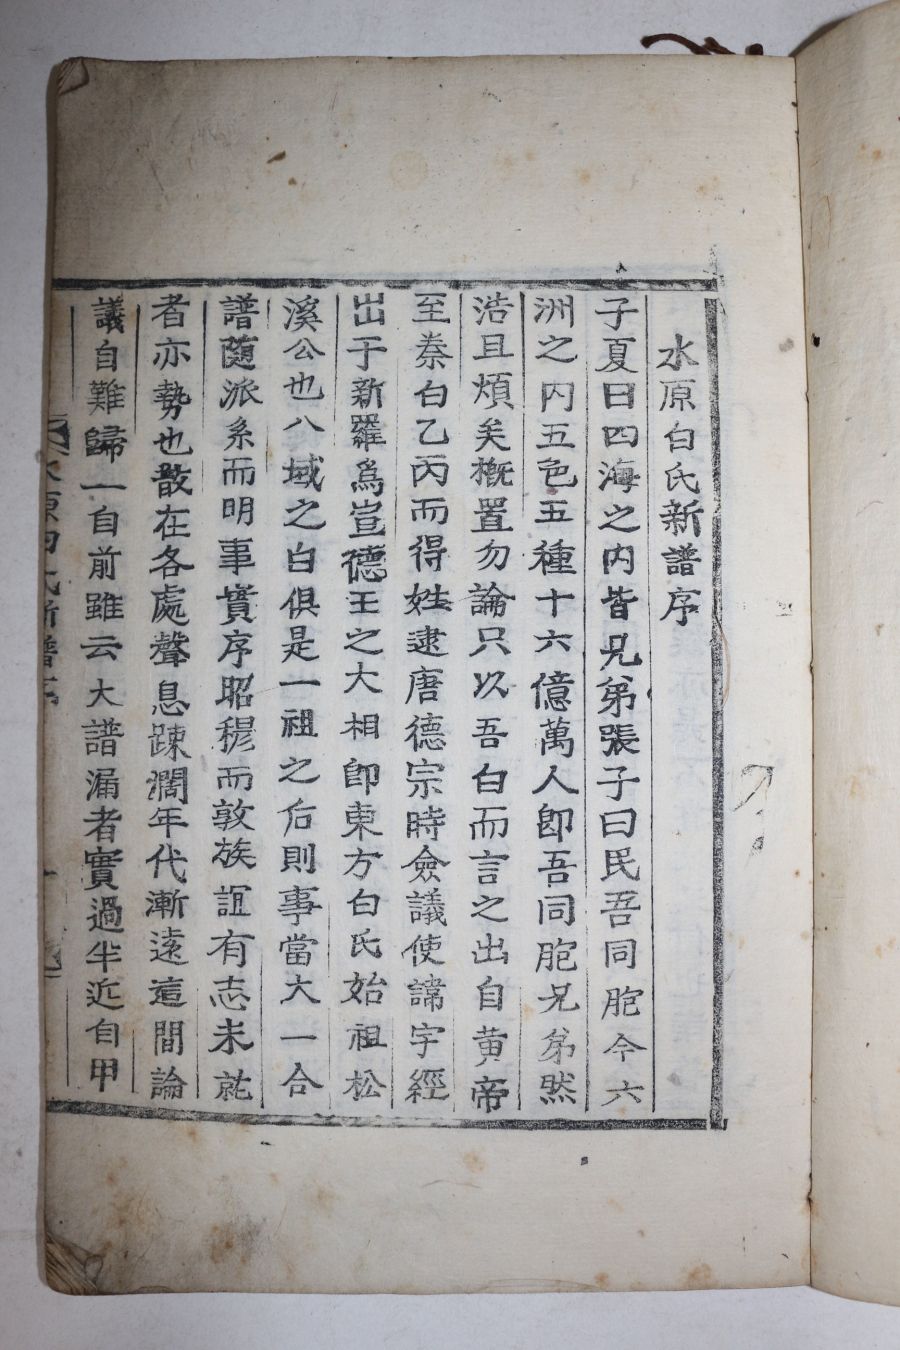 水原白氏新譜序
子夏曰四海之內皆兄弟張子曰民吾同胞今六
洲之內五色五種十六億萬人卽吾同胞兄弟然
浩且煩矣槪置勿論只以吾白而言之出自黃帝
至秦白乙丙而得姓逮唐德宗時僉議使諱宇經
出于新羅爲宣德王之大相卽東方白氏始祖松
溪公也八域之白俱是一祖之后則事當大一合
譜隨派系而明事實序昭穆而敦族誼有志未就
者亦勢也散在各處聲息踈濶年代漸遠這間論
議自難歸一自前雖云大譜漏者實過半近自甲
水原白氏新譜序